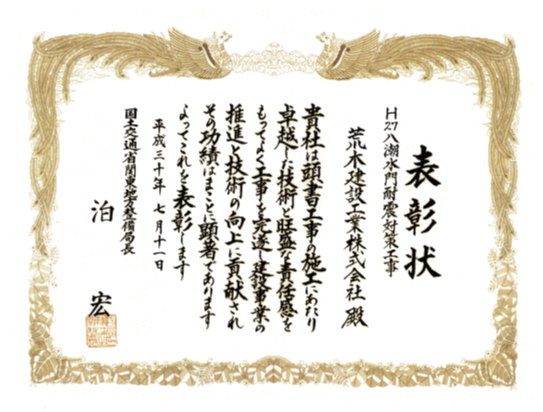 表彰状
H27八潮水門耐震対策工事
荒木建設工業株式会社 殿
貴社は頭書工事の施工にあたり
卓越した技術と旺盛な責任感を
もってよく工事を完遂し建設事業の
推進と技術の向上に貢献され
その功績はまことに顕著であります
よってこれを表彰します
平成三十年 七月十一日
国土交通省関東地方整備局長
泊 宏